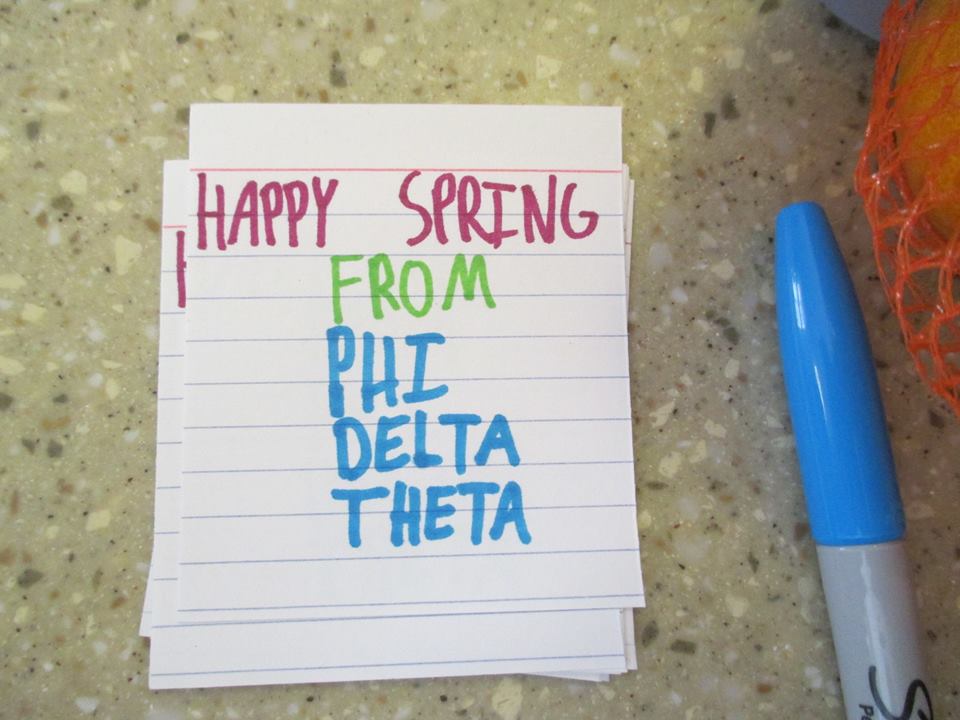 HAPPY SPRING
FROM
PHI
DELTA
THETA